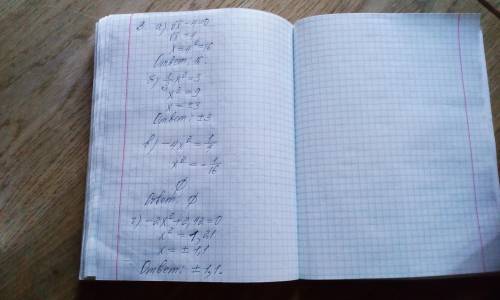 2. а) √x - 4 = 0
√x = 4
x = 4² = 16
Ответ: 16.
б) 1/3 x² = 3
x² = 9
x = ±3
Ответ: ±3
в) -4x² = 1/4
x² = -1/16
∅
Ответ: ∅
г) -2x² + 2,42 = 0
x² = 1,21
x = ± 1,1
Ответ: ± 1,1.